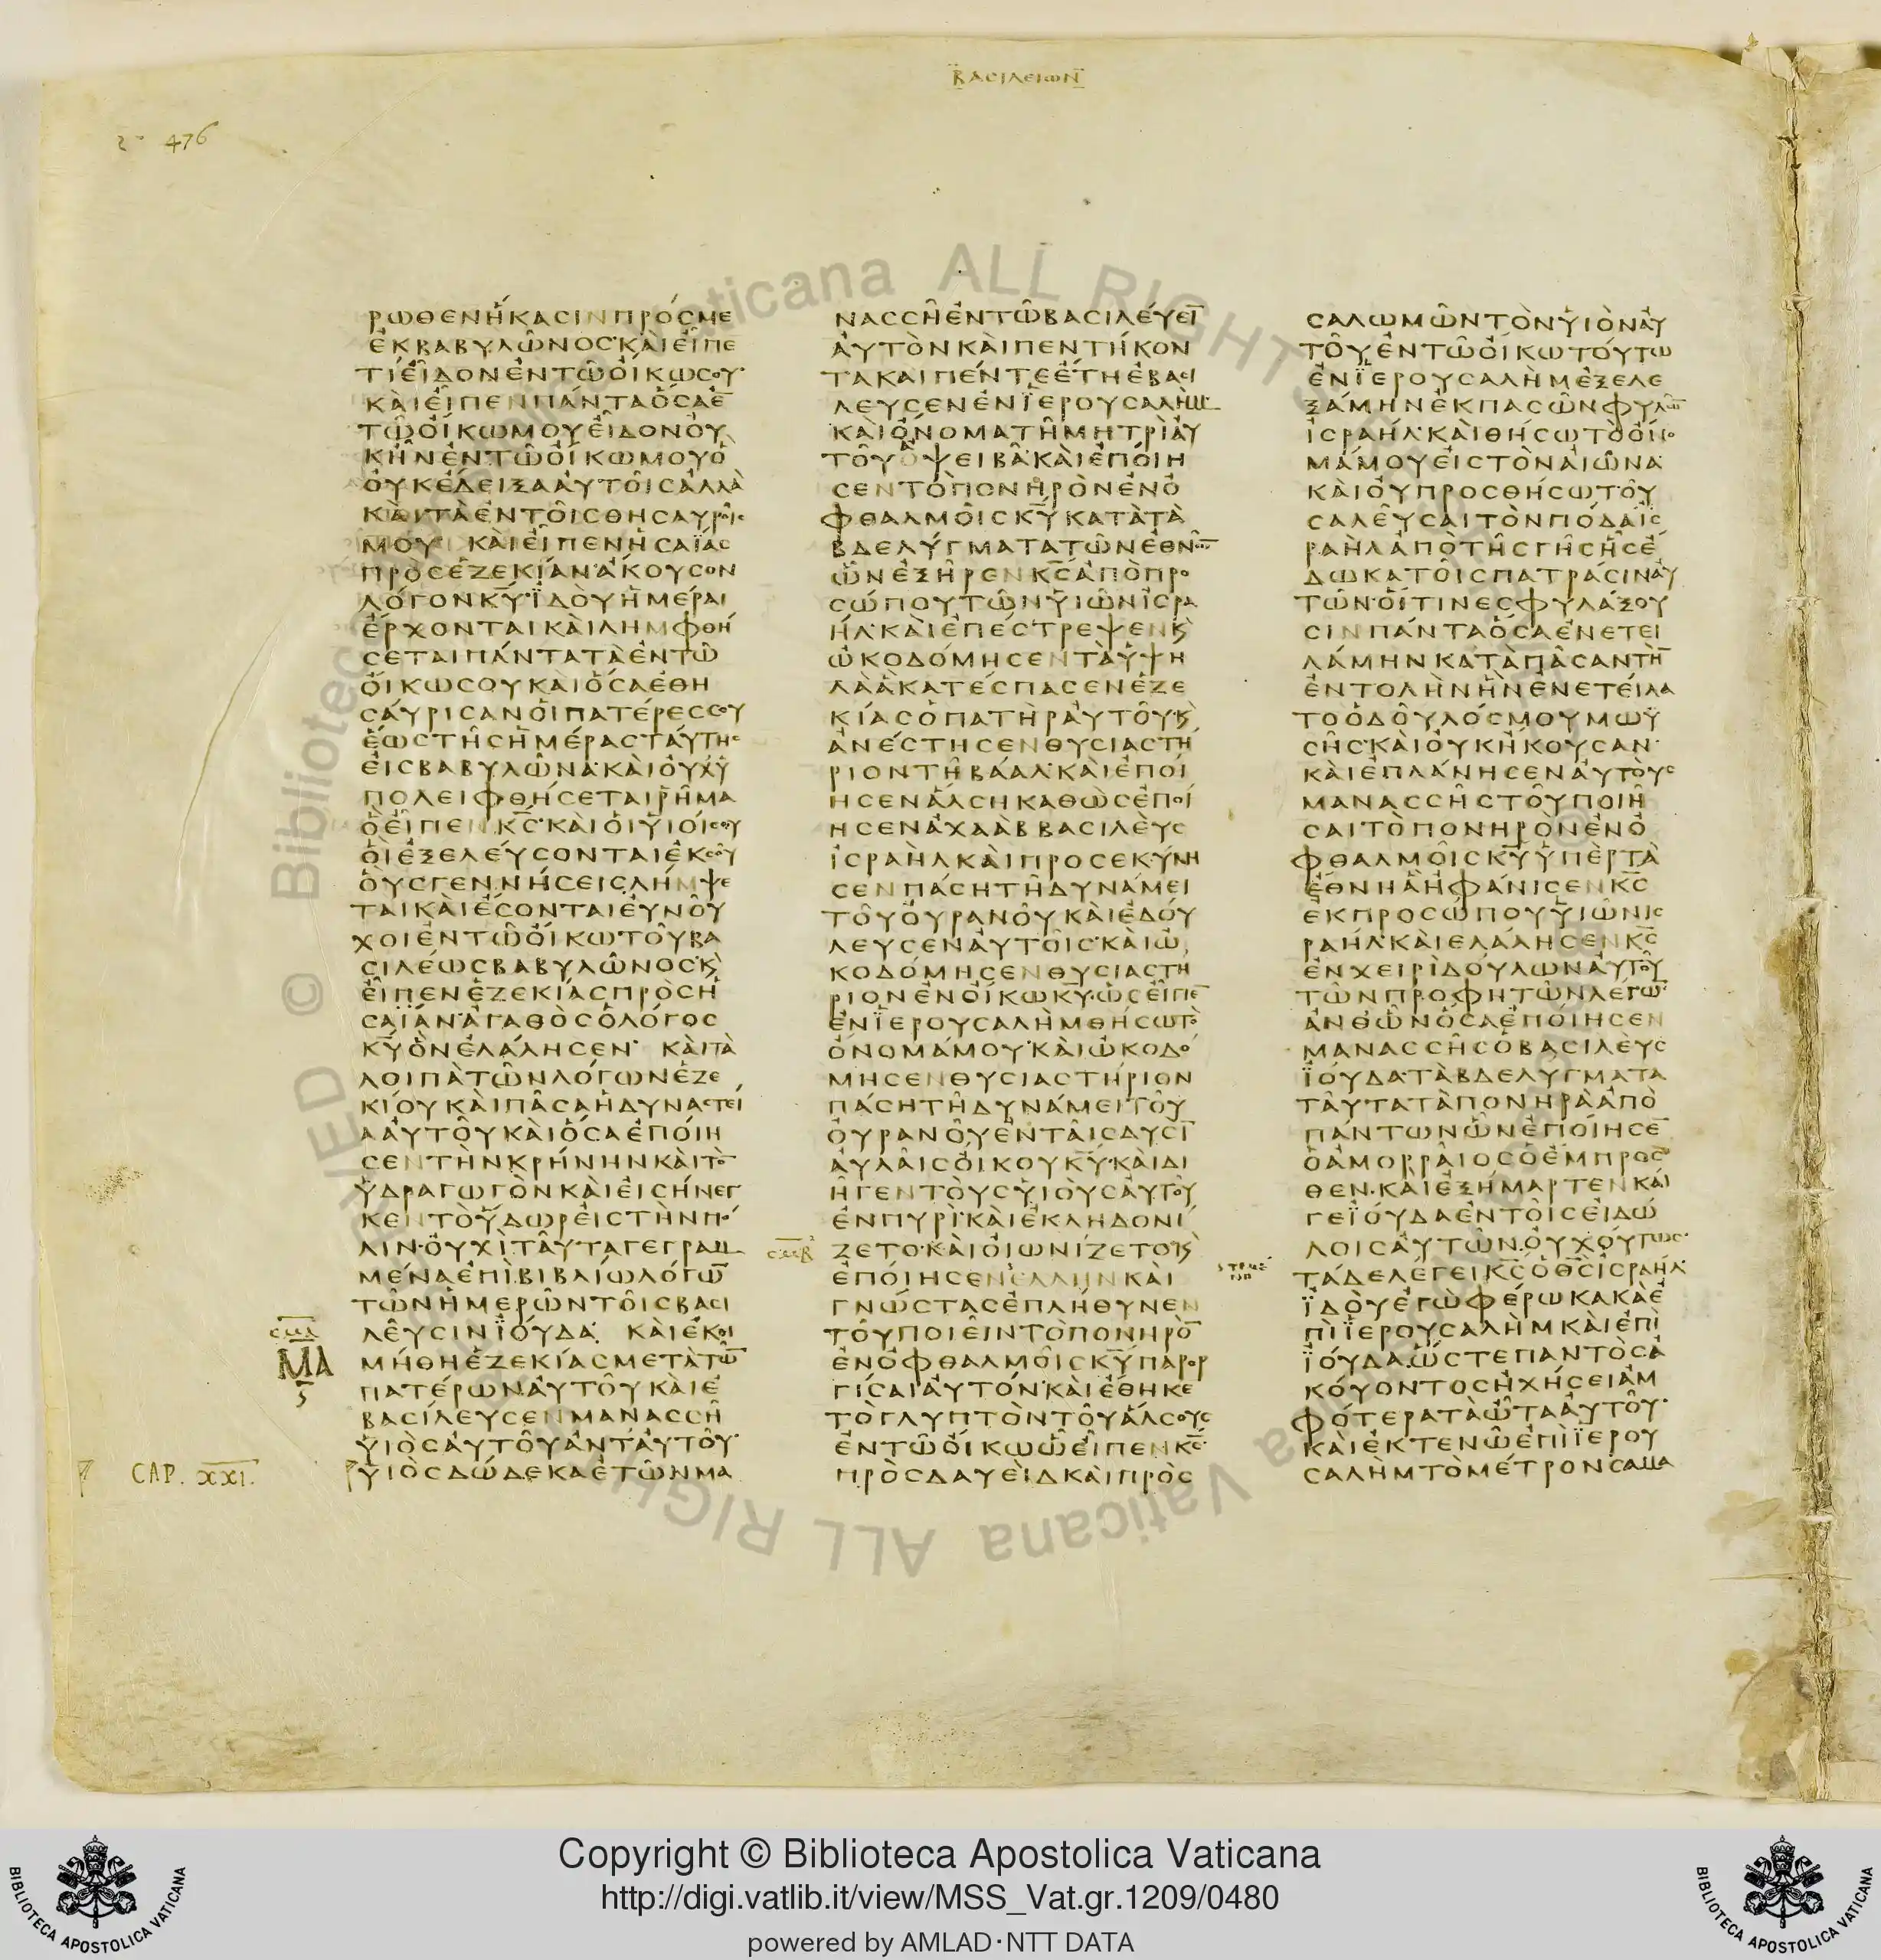 ΒΑCΙΛΕΙωΝ
476
ΡωΘΕΝΗΚΑCΙΝΠΡΟCΜΕ
ΕΚΒΑΒΥΛωΝΟC·ΚΑΙΕΙΠΕ
ΤΙΕΙΔΟΝΕΝΤωΟΙΚωCΟΥ·
ΚΑΙΕΙΠΕΝΠΑΝΤΑΟCΑΕ̅
ΤωΟΙΚωΜΟΥΕΙΔΟΝΟΥ
ΚΗΝΕΝΤωΟΙΚωΜΟΥΟ
ΟΥΚΕΔΕΙΞΑΑΥΤΟΙCΑΛΛΑ
ΚΑΙΤΑΕΝΤΟΙCΘΗCΑΥΡΟΙC
ΜΟΥ ΚΑΙΕΙΠΕΝΗCΑΪΑC
ΠΡΟCΕΖΕΚΙΑΝ·ΑΚΟΥCΟΝ
ΛΟΓΟΝΚ̅Υ̅·ΪΔΟΥΗΜΕΡΑΙ
ΕΡΧΟΝΤΑΙΚΑΙΛΗΜΦΘΗ
CΕΤΑΙΠΑΝΤΑΤΑΕΝΤω
ΟΙΚωCΟΥΚΑΙΟCΑΕΘΗ
CΑΥΡΙCΑΝΟΙΠΑΤΕΡΕCCΟΥ
ΕωCΤΗCΗΜΕΡΑCΤΑΥΤΗC
ΕΙCΒΑΒΥΛωΝΑ·ΚΑΙΟΥΧΥ
ΠΟΛΕΙΦΘΗCΕΤΑΙΡΗΜΑ
ΟΕΙΠΕΝΚ̅C̅·ΚΑΙΟΙΥΙΟΙCΟΥ
ΟΙΕΞΕΛΕΥCΟΝΤΑΙΕΚCΟΥ
ΟΥCΓΕΝΝΗCΕΙCΛΗΜΨΕ
ΤΑΙΚΑΙΕCΟΝΤΑΙΕΥΝΟΥ
ΧΟΙΕΝΤωΟΙΚωΤΟΥΒΑ
CΙΛΕωCΒΑΒΥΛωΝΟC·Κ
ΕΙΠΕΝΕΖΕΚΙΑCΠΡΟCΗ
CΑΪΑΝ·ΑΓΑΘΟCΟΛΟΓΟC
Κ̅Υ̅ΟΝΕΛΑΛΗCΕΝ· ΚΑΙΤΑ
ΛΟΙΠΑΤωΝΛΟΓωΝΕΖΕ
ΚΙΟΥΚΑΙΠΑCΑΗΔΥΝΑCΤΕΙ
ΑΑΥΤΟΥΚΑΙΟCΑΕΠΟΙΗ
CΕΝΤΗΝΚΡΗΝΗΝΚΑΙΤΟ̅
ΥΔΡΑΓωΓΟΝΚΑΙΕΙCΗΝΕΓ
ΚΕΝΤΟΥΔωΡΕΙCΤΗΝΠΟ
ΛΙΝ·ΟΥΧΙΤΑΥΤΑΓΕΓΡΑΜ
ΜΕΝΑΕΠΙΒΙΒΛΙωΛΟΓω̅
ΤωΝΗΜΕΡωΝΤΟΙCΒΑCΙ
ΛΕΥCΙΝΪΟΥΔΑ· ΚΑΙΕΚΟΙ
ΜΗΘΗΕΖΕΚΙΑCΜΕΤΑΤω̅
ΠΑΤΕΡωΝΑΥΤΟΥΚΑΙΕ
ΒΑCΙΛΕΥCΕΝΜΑΝΑCCΗ
ΥΙΟCΑΥΤΟΥΑΝΤΑΥΤΟΥ·
ΥΙΟCΔωΔΕΚΑΕΤωΝΜΑ
ΜΑ
CAP. XXI.
ΝΑCCΗΕΝΤωΒΑCΙΛΕΥΕΙ̅
ΑΥΤΟΝΚΑΙΠΕΝΤΗΚΟΝ
ΤΑΚΑΙΠΕΝΤΕΕΤΗΕΒΑCΙ
ΛΕΥCΕΝΕΝΪΕΡΟΥCΑΛΗΜ·
ΚΑΙΟΝΟΜΑΤΗΜΗΤΡΙΑΥ
ΤΟΥΟΨΕΙΒΑ·ΚΑΙΕΠΟΙΗ
CΕΝΤΟΠΟΝΗΡΟΝΕΝΟ
ΦΘΑΛΜΟΙCΚ̅Υ̅ΚΑΤΑΤΑ
ΒΔΕΛΥΓΜΑΤΑΤωΝΕΘΝω̅
ωΝΕΞΗΡΕΝΚ̅C̅ΑΠΟΠΡΟ
CωΠΟΥΤωΝΥΙωΝΙCΡΑ
ΗΛ·ΚΑΙΕΠΕCΤΡΕΨΕΝΚ
ωΚΟΔΟΜΗCΕΝΤΑΥΨΗ
ΛΑΑΚΑΤΕCΠΑCΕΝΕΖΕ
ΚΙΑCΟΠΑΤΗΡΑΥΤΟΥ·Κ
ΑΝΕCΤΗCΕΝΘΥCΙΑCΤΗ
ΡΙΟΝΤΗΒΑΑΛ·ΚΑΙΕΠΟΙ
ΗCΕΝΑΛCΗΚΑΘωCΕΠΟΙ
ΗCΕΝΑΧΑΑΒΒΑCΙΛΕΥC
ΙCΡΑΗΛΚΑΙΠΡΟCΕΚΥΝΗ
CΕΝΠΑCΗΤΗΔΥΝΑΜΕΙ
ΤΟΥΟΥΡΑΝΟΥΚΑΙΕΔΟΥ
ΛΕΥCΕΝΑΥΤΟΙC·ΚΑΙω
ΚΟΔΟΜΗCΕΝΘΥCΙΑCΤΗ
ΡΙΟΝΕΝΟΙΚωΚ̅Υ̅·ωCΕΙΠΕ̅
ΕΝΪΕΡΟΥCΑΛΗΜΘΗCωΤΟ
ΟΝΟΜΑΜΟΥ·ΚΑΙωΚΟΔΟ
ΜΗCΕΝΘΥCΙΑCΤΗΡΙΟΝ
ΠΑCΗΤΗΔΥΝΑΜΕΙΤΟΥ
ΟΥΡΑΝΟΥΕΝΤΑΙCΔΥCΙ̅
ΑΥΛΑΙCΟΙΚΟΥΚ̅Υ̅·ΚΑΙΔΙ
ΗΓΕΝΤΟΥCΥΙΟΥCΑΥΤΟΥ
ΕΝΠΥΡΙ·ΚΑΙΕΚΛΗΔΟΝΙ
ΖΕΤΟ·ΚΑΙΟΙωΝΙΖΕΤΟ·Κ
ΕΠΟΙΗCΕΝΕΛΛΗΝΚΑΙ
ΓΝωCΤΑCΕΠΛΗΘΥΝΕΝ
ΤΟΥΠΟΙΕΙΝΤΟΠΟΝΗΡΟ̅
ΕΝΟΦΘΑΛΜΟΙCΚ̅Υ̅ΠΑΡΟΡ
ΓΙCΑΙΑΥΤΟΝ·ΚΑΙΕΘΗΚΕ
ΤΟΓΛΥΠΤΟΝΤΟΥΑΛCΟΥC
ΕΝΤωΟΙΚωωΕΙΠΕΝΚ̅C̅
ΠΡΟCΔΑΥΕΙΔΚΑΙΠΡΟC
CΑΛωΜωΝΤΟΝΥΙΟΝΑΥ
ΤΟΥ·ΕΝΤωΟΙΚωΤΟΥΤω
ΕΝΪΕΡΟΥCΑΛΗΜΕΞΕΛΕ
ΞΑΜΗΝΕΚΠΑCωΝΦΥΛω̅
ΙCΡΑΗΛ·ΚΑΙΘΗCωΤΟΟΝΟ
ΜΑΜΟΥΕΙCΤΟΝΑΙωΝΑ·
ΚΑΙΟΥΠΡΟCΘΗCωΤΟΥ
CΑΛΕΥCΑΙΤΟΝΠΟΔΑΙC
ΡΑΗΛΑΠΟΤΗCΓΗCΗCΕ
ΔωΚΑΤΟΙCΠΑΤΡΑCΙΝΑΥ
ΤωΝ·ΟΙΤΙΝΕCΦΥΛΑΞΟΥ
CΙΝΠΑΝΤΑΟCΑΕΝΕΤΕΙ
ΛΑΜΗΝΚΑΤΑΠΑCΑΝΤΗ̅
ΕΝΤΟΛΗΝΗΝΕΝΕΤΕΙΛΑ
ΤΟΟΔΟΥΛΟCΜΟΥΜωΫ
CΗC·ΚΑΙΟΥΚΗΚΟΥCΑΝ·
ΚΑΙΕΠΛΑΝΗCΕΝΑΥΤΟΥC
ΜΑΝΑCCΗCΤΟΥΠΟΙΗ
CΑΙΤΟΠΟΝΗΡΟΝΕΝΟ
ΦΘΑΛΜΟΙCΚ̅Υ̅ΥΠΕΡΤΑ
ΕΘΝΗΑΗΦΑΝΙCΕΝΚ̅C̅
ΕΚΠΡΟCωΠΟΥΥΙωΝΙC
ΡΑΗΛ·ΚΑΙΕΛΑΛΗCΕΝΚ̅C̅
ΕΝΧΕΙΡΙΔΟΥΛωΝΑΥΤΟΥ
ΤωΝΠΡΟΦΗΤωΝΛΕΓω̅·
ΑΝΘωΝΟCΑΕΠΟΙΗCΕΝ
ΜΑΝΑCCΗCΟΒΑCΙΛΕΥC
ΪΟΥΔΑ·ΤΑΒΔΕΛΥΓΜΑΤΑ
ΤΑΥΤΑΤΑΠΟΝΗΡΑΑΠΟ
ΠΑΝΤωΝωΝΕΠΟΙΗCΕ̅
ΟΑΜΟΡΡΑΙΟCΟΕΜΠΡΟC
ΘΕΝ·ΚΑΙΕΞΗΜΑΡΤΕΝΚΑΙ
ΓΕΪΟΥΔΑΕΝΤΟΙCΕΙΔω
ΛΟΙCΑΥΤωΝ·ΟΥΧΟΥΤωC·
ΤΑΔΕΛΕΓΕΙΚ̅C̅ΟΘ̅C̅ΙCΡΑΗΛ·
ΪΔΟΥΕΓωΦΕΡωΚΑΚΑΕ
ΠΙΪΕΡΟΥCΑΛΗΜΚΑΙΕΠΙ
ΪΟΥΔΑ·ωCΤΕΠΑΝΤΟCΑ
ΚΟΥΟΝΤΟCΗΧΗCΕΙΑΜ
ΦΟΤΕΡΑΤΑωΤΑΑΥΤΟΥ·
ΚΑΙΕΚΤΕΝωΕΠΙΪΕΡΟΥ
CΑΛΗΜΤΟΜΕΤΡΟΝCΑΜΑ
Copyright © Biblioteca Apostolica Vaticana
http://digi.vatlib.it/view/MSS_Vat.gr.1209/0480
powered by AMLAD·NTT DATA
BIBLIOTECA APOSTOLICA VATICANA
BIBLIOTECA APOSTOLICA VATICANA